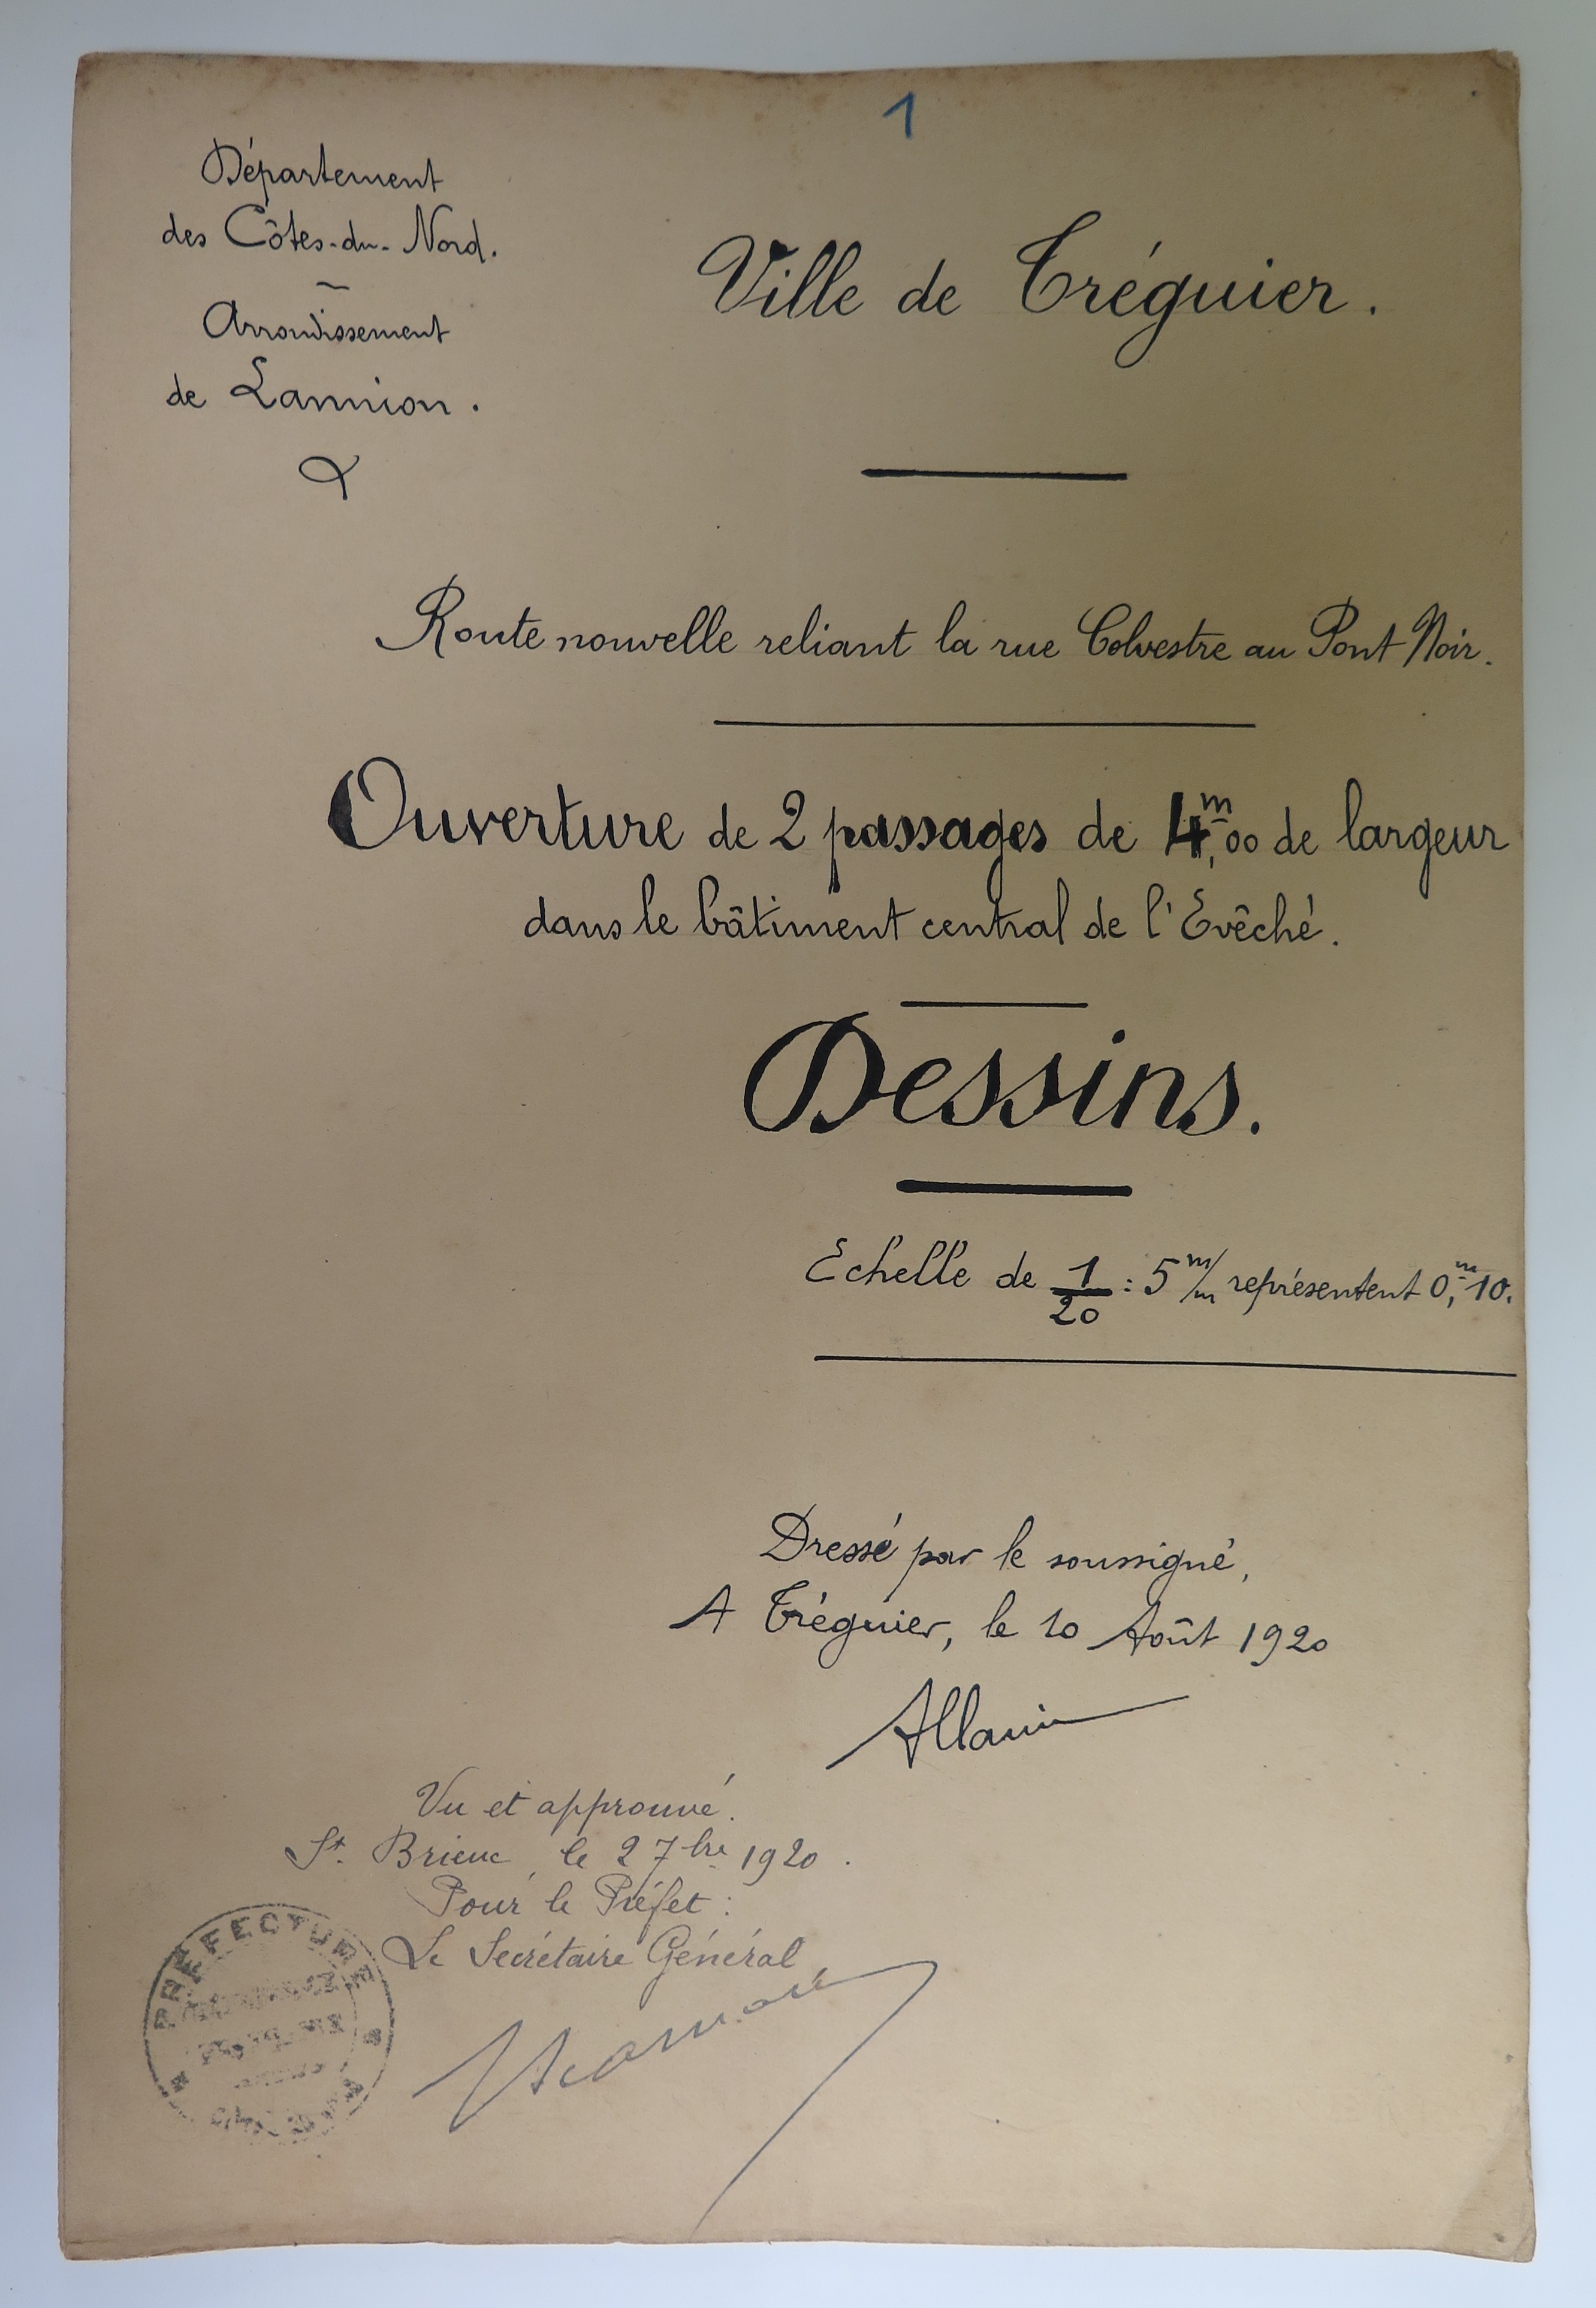 1
Département
des Côtes-du-Nord.
Arrondissement
de Lannion.
Ville de Tréguier.
Route nouvelle reliant la rue Colvestre au Pont Noir.
Ouverture de 2 passages de 4,m00 de largeur
dans le bâtiment central de l'Evêché.
Dessins.
Echelle de 1/20 : 5 m/m représentent 0,m10.
Dressé par le soussigné,
A Tréguier, le 10 Août 1920
Vu et approuvé.
St. Brieuc, le 2 7bre 1920.
Pour le Préfet :
Le Secrétaire Général
PREFECTURE